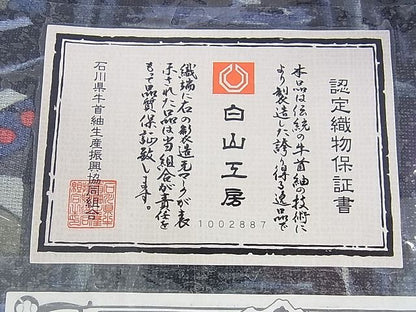 認定織物保証書
本品は伝統の牛首紬の技術に
より製造した誇り得る逸品で
す。
白山工房
1002887
織端に右の製造元マークが表
示された品は当組合が責任を
もって品質保証致します。
石川県牛首紬生産振興協同組合